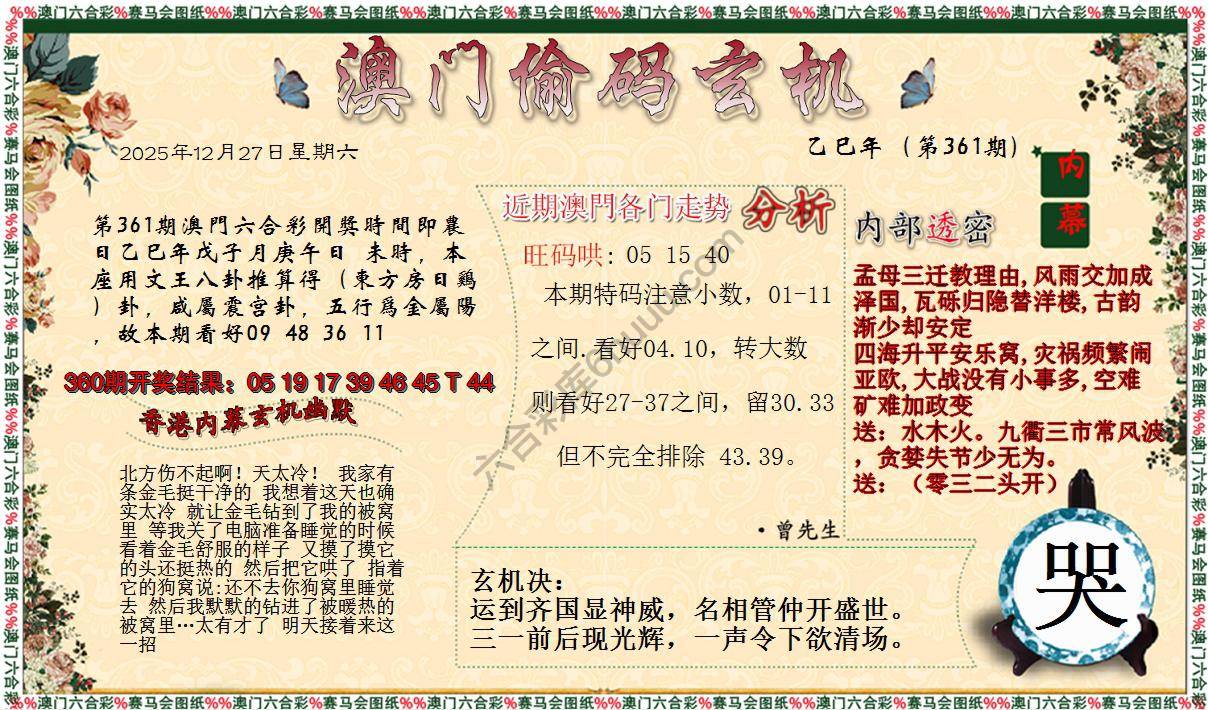 %%澳门六合彩%赛马会图纸%%澳门六合彩%赛马会图纸%%澳门六合彩%赛马会图纸%%澳门六合彩%赛马会图纸%%澳门六合彩%赛马会图纸%%澳门六合彩%赛马会图纸%%澳门六合彩%赛马会图纸%%
澳门偷码玄机
2025年12月27日星期六
乙巳年（第361期）
内
幕
第361期澳門六合彩開獎時間即農
日乙巳年戊子月庚午日 未時，本
座用文王八卦推算得（東方房日鷄
）卦，咸屬震宫卦，五行爲金屬陽
，故本期看好09 48 36 11
360期开奖结果：05 19 17 39 46 45 T 44
香港内幕玄机幽默
北方伤不起啊！天太冷！ 我家有
条金毛挺干净的 我想着这天也确
实太冷 就让金毛钻到了我的被窝
里 等我关了电脑准备睡觉的时候
看着金毛舒服的样子 又摸了摸它
的头还挺热的 然后把它哄了 指着
它的狗窝说:还不去你狗窝里睡觉
去 然后我默默的钻进了被暖热的
被窝里…太有才了 明天接着来这
一招
近期澳門各门走势 分析
旺码哄: 05 15 40
本期特码注意小数，01-11
之间.看好04.10，转大数
则看好27-37之间，留30.33
但不完全排除 43.39。
·曾先生
内部透密
孟母三迁教理由,风雨交加成
泽国,瓦砾归隐替洋楼,古韵
渐少却安定
四海升平安乐窝,灾祸频繁闹
亚欧,大战没有小事多,空难
矿难加政变
送：水木火。九衢三市常风波
，贪婪失节少无为。
送：（零三二头开）
玄机决：
运到齐国显神威，名相管仲开盛世。
三一前后现光辉，一声令下欲清场。
哭
%%澳门六合彩%赛马会图纸%%澳门六合彩%赛马会图纸%%澳门六合彩%赛马会图纸%%澳门六合彩%赛马会图纸%%澳门六合彩%赛马会图纸%%澳门六合彩%赛马会图纸%%澳门六合彩%赛马会图纸%%